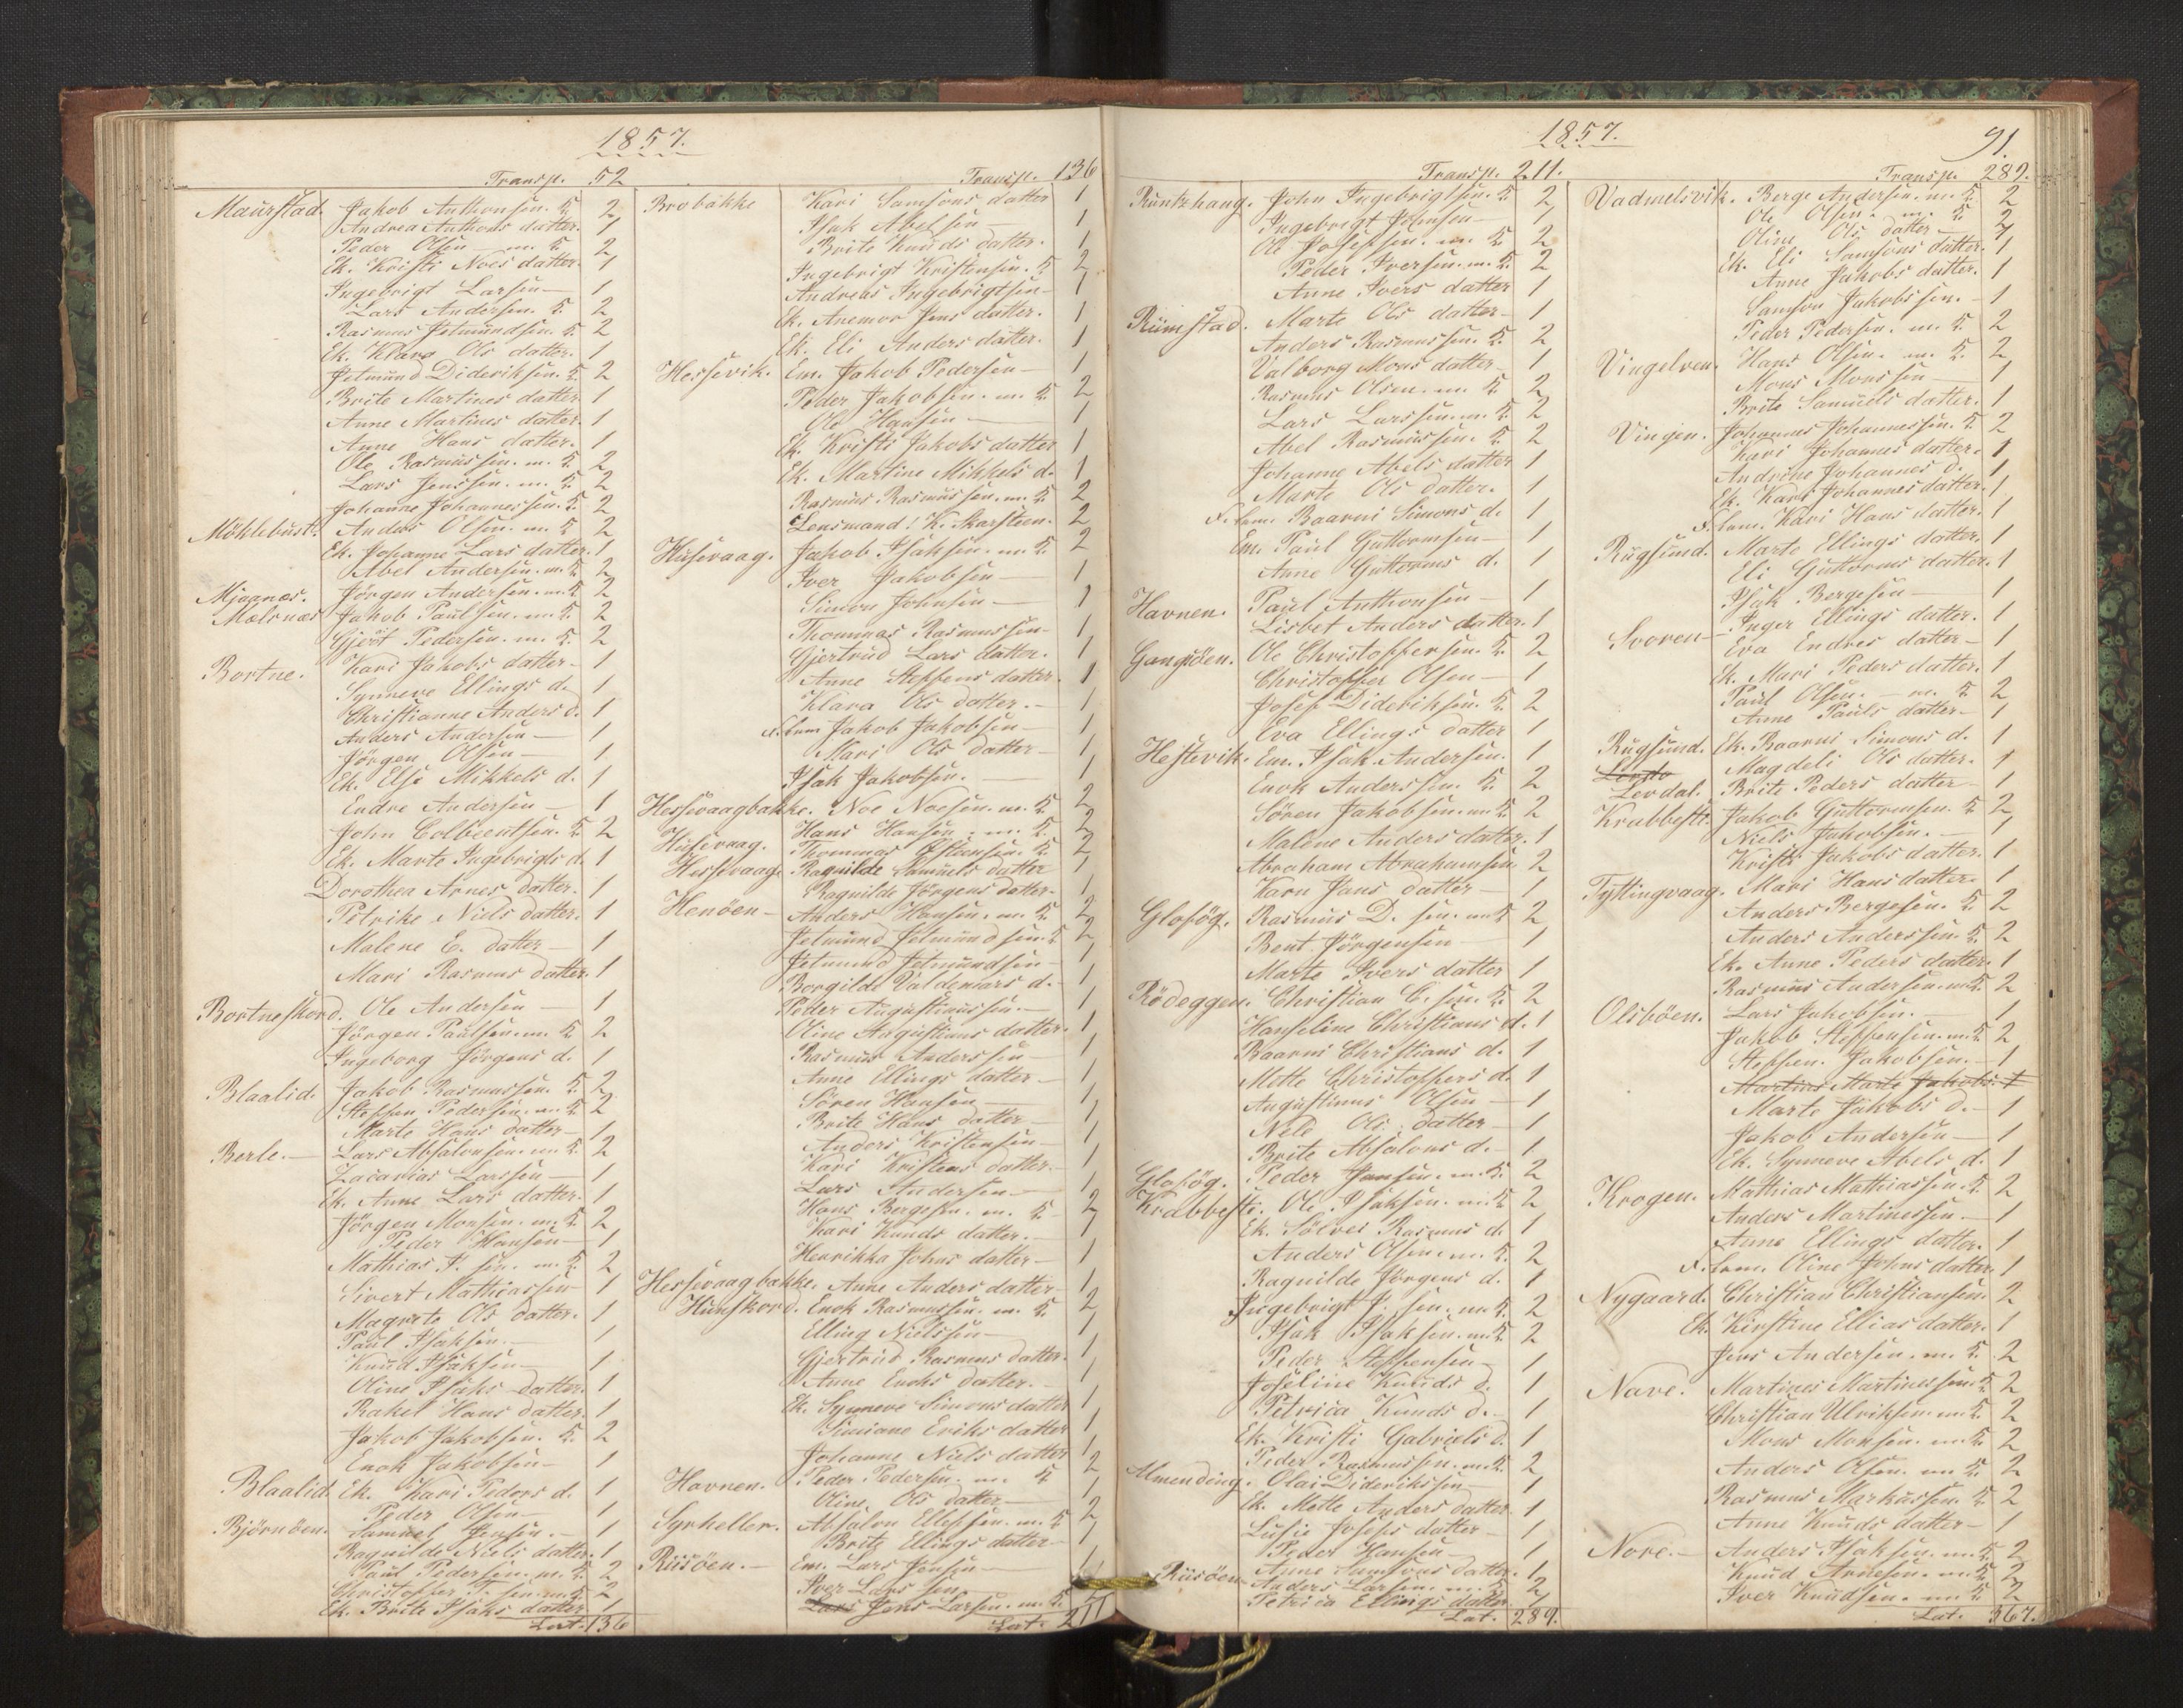 1857.
Transp. 52
Maurstad. Jakob Anthonsen. K. 2
Andrea Anthons datter. 1
Peder Olsen m. K. 2
Ek. Kristi Noes datter. 1
Ingebrigt Larsen 1
Lars Andersen. K. 2
Rasmus Jetmundsen. K. 2
Ek. Klara Ols datter. 1
Jetmund Dideriksen. K. 2
Brite Martines datter. 1
Anne Martines datter. 1
Anne Hans datter. 1
Ole Rasmussen. m. K. 2
Lars Jenssen. m. K. 2
Johanne Johannessen. K. 2
Möklebust. Anders Olsen. m. K. 2
Ek. Johanne Lars datter. 1
Abel Andersen. m. K. 2
Mjaanæs. Jörgen Andersen. m. K. 2
Mælsnæs Jakob Paulsen. m. K. 2
Gjert Pedersen. m. K. 2
Bortne. Kari Jakobs datter 1
Synneve Ellings d. 1
Christianne Anders d. 1
Anders Andersen 1
Jörgen Olsen 1
Ek. Else Mikkels d. 1
Endre Andersen 1
John Colbeentsen. K. 2
Ek. Marte Ingebrigts d. 1
Dorothea Arnes datter. 1
Petrike Niels datter. 1
Malene E. datter 1
Mari Rasmus datter. 1
Bortneskord. Ole Andersen 1
Jörgen Paulsen. m. K. 2
Ingeborg Jörgens d. 1
Blaalid. Jakob Rasmussen. K. 2
Steffen Pedersen. m. K. 2
Marte Hans datter 1
Berle. Lars Absalonsen. m. K. 2
Zacarias Larssen 1
Ek. Anne Lars datter. 1
Jörgen Monsen. m. K. 2
Peder Hansen 1
Mathias J. sen. m. K. 2
Sivert Mathiassen 1
Magrete Ols datter. 1
Paul Isaksen. 1
Knud Isaksen 1
Oline Isaks datter. 1
Rakel Hans datter. 1
Jakob Jakobsen. K. 2
Enok Jakobsen 1
Blaalid. Ek. Kari Peders d. 1
Peder Olsen 1
Björnöen. Samuel Jensen. 1
Ragnilde Niels datter. 1
Paul Pedersen. m. K. 2
Christoffer T. sen. m. K. 2
Ek. Brite Isaks datter 1
Lat. 136
Transp. 136
Brobakke Kari Samsons datter 1
Isak Abelsen 1
Brite Knuds datter. 1
Ingebrigt Kristensen. K. 2
Andreas Ingebrigtsen 1
Ek. Anemor Jens datter. 1
Ek. Eli Anders datter. 1
Hessevik. Em. Jakob Pedersen 1
Peder Jakobsen. m. K. 2
Ole Hansen 1
Ek. Kristi Jakobs datter 1
Ek. Martine Mikkels d. 1
Rasmus Rasmussen. m. K. 2
Lensmand! K. Skarsteen. 2
Husevaag. Jakob Isaksen. m. K. 2
Iver Jakobsen 1
Simon Johnsen 1
Thommas Rasmussen 1
Gjertrud Lars datter. 1
Anne Steffens datter. 1
Klara Ols datter. 1
F. lem Jakob Jakobsen 1
Mari Ols datter 1
Isak Jakobsen. 1
Hessevaagbakke. Noe Noesen. m. K. 2
Hans Hansen. m. K. 2
Husevaag. Thommas Osteensen. K. 2
Hessevaag. Ragnilde Samuels datter 1
Ragnilde Jörgens datter. 1
Henöen Anders Hansen. m. K. 2
Jetmund Jetmundsen. K. 2
Jetmund Jetmundsen 1
Borgilde Valdemars d. 1
Peder Augustinussen. 1
Oline Augustinus datter. 1
Rasmus Anderssen 1
Anne Ellings datter 1
Sören Hansen 1
Brite Hans datter 1
Anders Kristensen 1
Kari Kristens datter. 1
Lars Andersen 1
Hans Bergesen. m. K. 2
Kari Knuds datter. 1
Henrikka Johns datter 1
Hessevaagbakke. Anne Anders datter 1
Hunskord. Enok Rasmussen. m. K. 2
Elling Nielssen 1
Gjertrud Rasmus datter. 1
Anne Enoks datter. 1
Ek. Synneve Simons datter 1
Simiane Eriks datter 1
Johanne Niels datter 1
Havnen. Peder Pedersen. m. K. 2
Oline Ols datter 1
Syrheller. Absalon Ellefsen. m. K. 2
Brite Ellings datter 1
Risöen. Em. Lars Jensen 1
Iver Lars sen. 1
Jens Larsen. m. K. 2
Lat. 211
1857. 91.
Transp. 211.
Runtzhaug. John Ingebrigtsen. K. 2
Ingebrigt Johnsen 1
Ole Josefsen. m. K. 2
Peder Iversen. m. K. 2
Anne Ivers datter 1
Rimstad. Marte Ols datter 1
Anders Rasmussen. K. 2
Valborg Mons datter 1
Rasmus Olsen. m. K. 2
Lars Larssen. m. K. 2
Abel Rasmussen. K. 2
Johanne Abels datter 1
Marte Ols datter. 1
F. lem. Baarni Simons d. 1
Em. Paul Guttormsen 1
Anne Guttorms d. 1
Havnen. Paul Anthonsen 1
Lisbet Anders datter. 1
Gangsöen. Ole Christoffersen. K. 2
Christoffer Olsen 1
Josef Dideriksen. K. 2
Eva Ellings datter 1
Hestevik. Em. Isak Andersen. 1
Enok Anderssen. K. 2
Sören Jakobsen. m. K. 2
Malene Anders datter. 1
Abraham Abrahamsen 2
Karn Jans datter 1
Glosög. Rasmus D. sen. m. K. 2
Bent Jörgensen 1
Marte Ivers datter 1
Rödeggen. Christian C. sen. K. 2
Hanseline Christians d. 1
Baarni Christians d. 1
Mette Christoffers d. 1
Augustinus Olsen 1
Nele Ols datter 1
Brite Absalons d. 1
Glosög. Peder Jansen. m. K. 2
Krabbesti. Ole Isaksen. m. K. 2
Ek. Sölvei Rasmus d. 1
Anders Olsen. m. K. 2
Ragnilde Jörgens d. 1
Ingebrigt J. sen. m. K. 2
Isak Isaksen. m. K. 2
Peder Steffensen 1
Joseline Knuds d. 1
Petrica Knuds d. 1
Ek. Kristi Gabriels d. 1
Peder Rasmussen. m. K. 2
Almending. Olai Dideriksen 1
Ek. Mette Anders datter. 1
Lusie Josefs datter 1
Peder Hansen 1
Anne Samsons datter. 1
Risöen Anders Larsen. m. K. 2
Petrica Ellings datter. 1
Lat. 289.
Transp. 289.
Vadmelsvik. Berge Andersen. m. K. 2
Ole Olsen. m. K. 2
Oline Ols datter 1
Ek. Eli Samsons datter. 1
Anne Jakobs datter. 1
Samson Jakobssen. 1
Peder Pedersen. m. K. 2
Vingelven. Hans Olsen. m. K. 2
Mons Monssen 1
Brite Samuels datter. 1
Vingen. Johannes Johannessen. K. 2
Kari Johannes datter. 1
Andrine Johannes d. 1
Ek. Kari Johannes datter. 1
F. lem. Kari Hans datter. 1
Rugsund. Marte Ellings datter. 1
Eli Guttorms datter. 1
Isak Bergesen 1
Inger Ellings datter. 1
Svoren Eva Endres datter 1
Ek. Mari Peders datter. 1
Paul Olsen. m. K. 2
Anne Pauls datter 1
Rugsund. Ek. Baarni Simons d. 1
Magdeli Ols datter. 1
Levdal. Brite Peders datter 1
Krabbesti. Jakob Guttormsen. K. 2
Niels Jakobsen. 1
Kristi Jakobs datter. 1
Tyttingvaag. Mari Hans datter. 1
Anders Bergesen. K. 2
Anders Anderssen. K. 2
Ek. Anne Peders datter. 1
Rasmus Andersen. m. K. 2
Olsböen. Lars Jakobsen. 1
Jakob Steffensen. m. K. 2
Steffen. Jakobsen. 1
Martine Marte Jakobs. 1
Marte Jakobs d. 1
Jakob Andersen 1
Ek. Synneve Abels d. 1
Krogen. Mathias Mathiassen. K. 2
Anders Martinessen 1
Anne Ellings datter. 1
F. lem. Oline Johns datter. 1
Nygaard. Christian Christiansen. 2
Ek. Kirstine Ellias datter. 1
Jens Andersen. m. K. 2
Nave. Martines Martinessen. K. 2
Christian Ulriksen. m. K. 2
Mons Monsen. m. K. 2
Anders Olsen. m. K. 2
Rasmus Markussen. K. 2
Anne Knuds datter 1
Nore. Anders Isaksen. m. K. 2
Knud Arnesen. m. K. 2
Iver Knudsen. m. K. 2
Lat. 367.